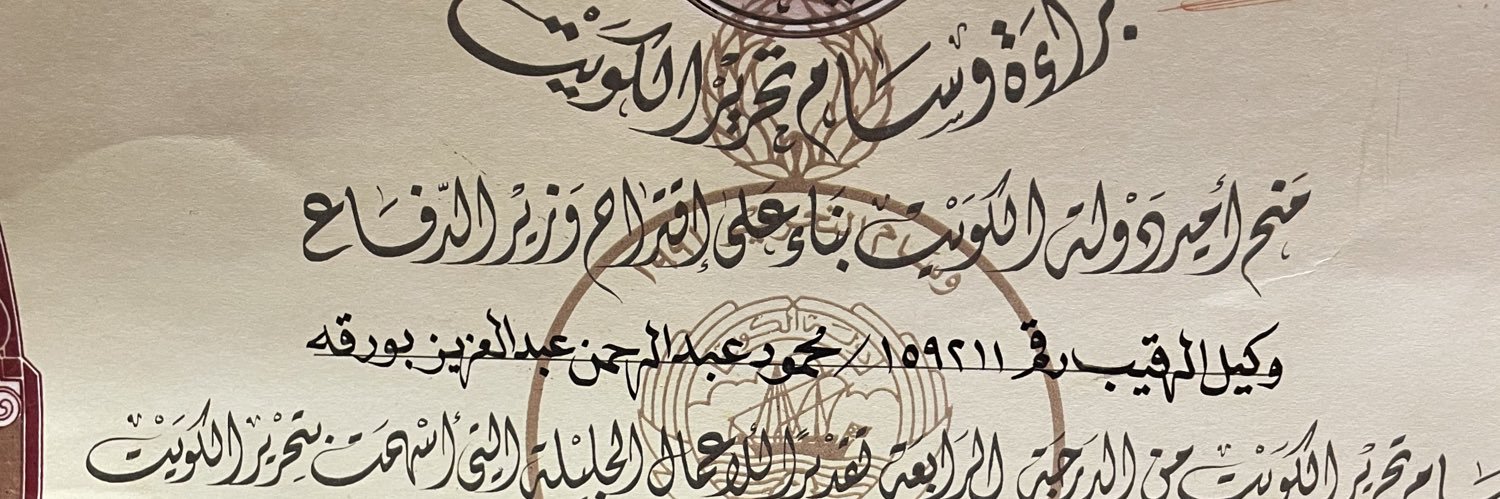 براءة وسام تحرير الكويت
منح أمير دولة الكويت بناء على إقتراح وزير الدفاع
وكيل الرقيب رقم ١٥٩٢١١ / محمود عبد الرحمن عبد العزيز بورقه
وسام تحرير الكويت من الدرجة الرابعة تقديرًا للأعمال الجليلة التي أسهمت بتحرير الكويت
وسام التحرير
١٩٩١